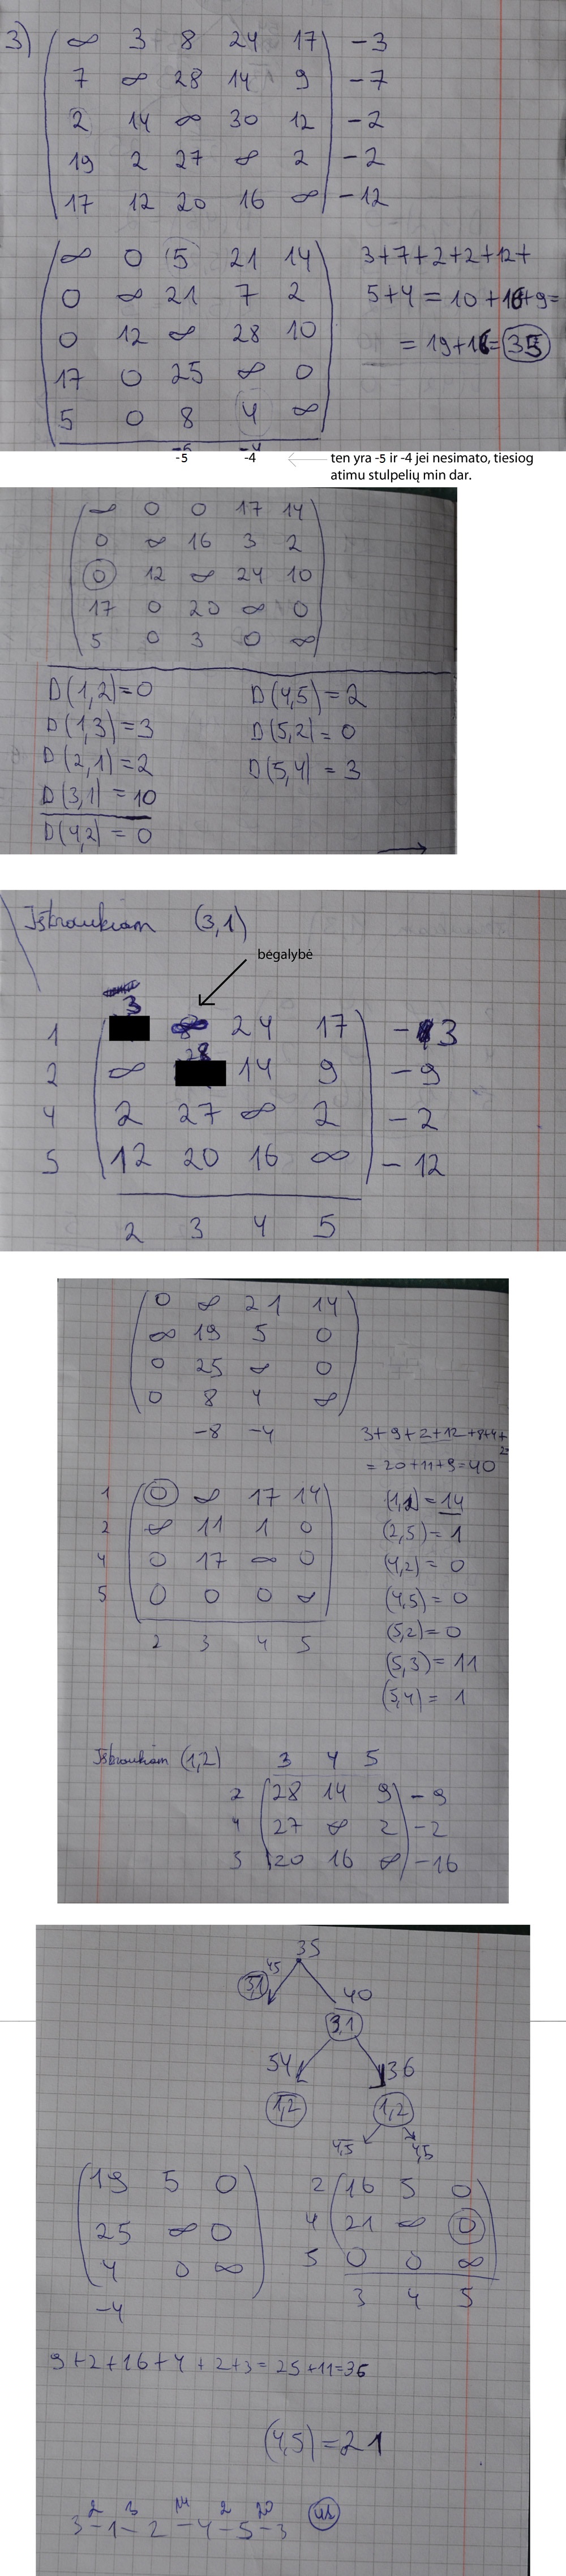 3)
∞ 3 8 24 17 -3
7 ∞ 28 14 9 -7
2 14 ∞ 30 12 -2
19 2 27 ∞ 2 -2
17 12 20 16 ∞ -12
∞ 0 5 21 14
0 ∞ 21 7 2
0 12 ∞ 28 10
17 0 25 ∞ 0
5 0 8 4 ∞
-5 -4
3+7+2+2+12+
5+4=10+16+9=
=19+16=35
-5 -4
ten yra -5 ir -4 jei nesimato, tiesiog
atimu stulpelių min dar.
∞ 0 0 17 14
0 ∞ 16 3 2
0 12 ∞ 24 10
17 0 20 ∞ 0
5 0 3 0 ∞
D(1,2)=0
D(1,3)=3
D(2,1)=2
D(3,1)=10
D(4,2)=0
D(4,5)=2
D(5,2)=0
D(5,4)=3
Išbraukiam (3,1)
bėgalybė
3
1 ∞ 24 17 -3
28
2 ∞ 14 9 -9
4 2 27 ∞ 2 -2
5 12 20 16 ∞ -12
2 3 4 5
0 ∞ 21 14
∞ 19 5 0
0 25 ∞ 0
0 8 4 ∞
-8 -4
3+9+2+12+8+4+
2
=20+11+9=40
1 0 ∞ 17 14
2 ∞ 11 1 0
4 0 17 ∞ 0
5 0 0 0 ∞
2 3 4 5
(1,2)=14
(2,5)=1
(4,2)=0
(4,5)=0
(5,2)=0
(5,3)=11
(5,4)=1
Išbraukiam (1,2)
3 4 5
2 28 14 9 -9
4 27 ∞ 2 -2
5 20 16 ∞ -16
35
45
3,1
40
3,1
54
36
1,2
1,2
4,5
4,5
19 5 0
25 ∞ 0
4 0 ∞
-4
2 16 5 0
4 21 ∞ 0
5 0 0 ∞
3 4 5
9+2+16+4+2+3=25+11=36
(4,5)=21
2 3 14 2 20
3-1-2-4-5-3